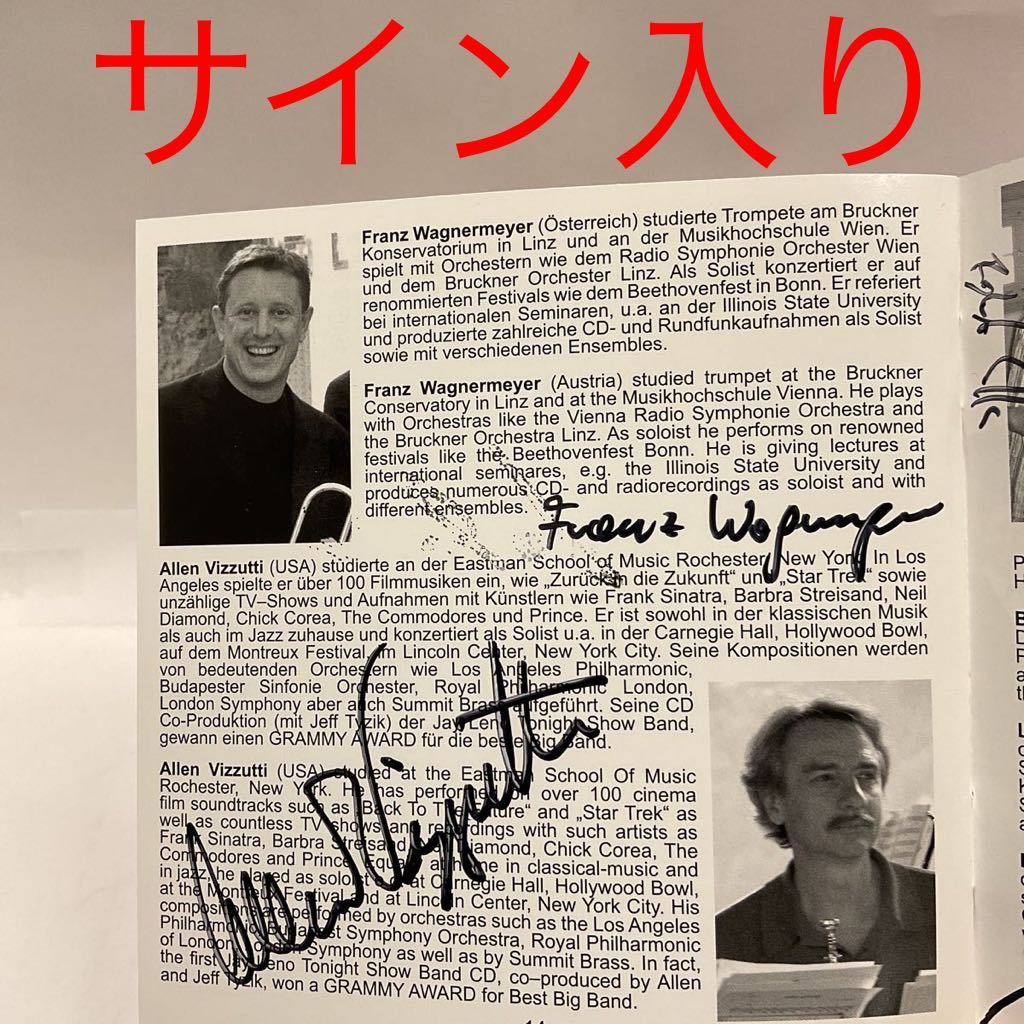 サイン入り
Franz Wagnermeyer (Österreich) studierte Trompete am Bruckner
Konservatorium in Linz und an der Musikhochschule Wien. Er
spielt mit Orchestern wie dem Radio Symphonie Orchester Wien
und dem Bruckner Orchester Linz. Als Solist konzertiert er auf
renommierten Festivals wie dem Beethovenfest in Bonn. Er referiert
bei internationalen Seminaren, u.a. an der Illinois State University
und produzierte zahlreiche CD- und Rundfunkaufnahmen als Solist
sowie mit verschiedenen Ensembles.
Franz Wagnermeyer (Austria) studied trumpet at the Bruckner
Conservatory in Linz and at the Musikhochschule Vienna. He plays
with Orchestras like the Vienna Radio Symphonie Orchestra and
the Bruckner Orchestra Linz. As soloist he performs on renowned
festivals like the Beethovenfest Bonn. He is giving lectures at
international seminares, e.g. the Illinois State University and
produces numerous CD- and radiorecordings as soloist and with
different ensembles.
Franz Wagnermeyer
Allen Vizzutti (USA) studierte an der Eastman School of Music Rochester, New York. In Los
Angeles spielte er über 100 Filmmusiken ein, wie „Zurück in die Zukunft“ und „Star Trek“ sowie
unzählige TV–Shows und Aufnahmen mit Künstlern wie Frank Sinatra, Barbra Streisand, Neil
Diamond, Chick Corea, The Commodores und Prince. Er ist sowohl in der klassischen Musik
als auch im Jazz zuhause und konzertiert als Solist u.a. in der Carnegie Hall, Hollywood Bowl,
auf dem Montreux Festival, im Lincoln Center, New York City. Seine Kompositionen werden
von bedeutenden Orchestern wie Los Angeles Philharmonic,
Budapester Sinfonie Orchester, Royal Philharmonic London,
London Symphony aber auch Summit Brass aufgeführt. Seine CD
Co-Produktion (mit Jeff Tyzik) der Jay Leno Tonight Show Band,
gewann einen GRAMMY AWARD für die beste Big Band.
Allen Vizzutti (USA) studied at the Eastman School Of Music
Rochester, New York. He has performed on over 100 cinema
film soundtracks such as „Back To The Future“ and „Star Trek“ as
well as countless TV shows and recordings with such artists as
Frank Sinatra, Barbra Streisand, Neil Diamond, Chick Corea, The
Commodores and Prince. Equally at home in classical-music and
in jazz, he played as soloist at Carnegie Hall, Hollywood Bowl,
at the Montreux Festival and at Lincoln Center, New York City. His
compositions are performed by orchestras such as the Los Angeles
Philharmonic, Budapest Symphony Orchestra, Royal Philharmonic
of London, London Symphony as well as by Summit Brass. In fact,
the first Jay Leno Tonight Show Band CD, co–produced by Allen
and Jeff Tyzik, won a GRAMMY AWARD for Best Big Band.
Allen Vizzutti